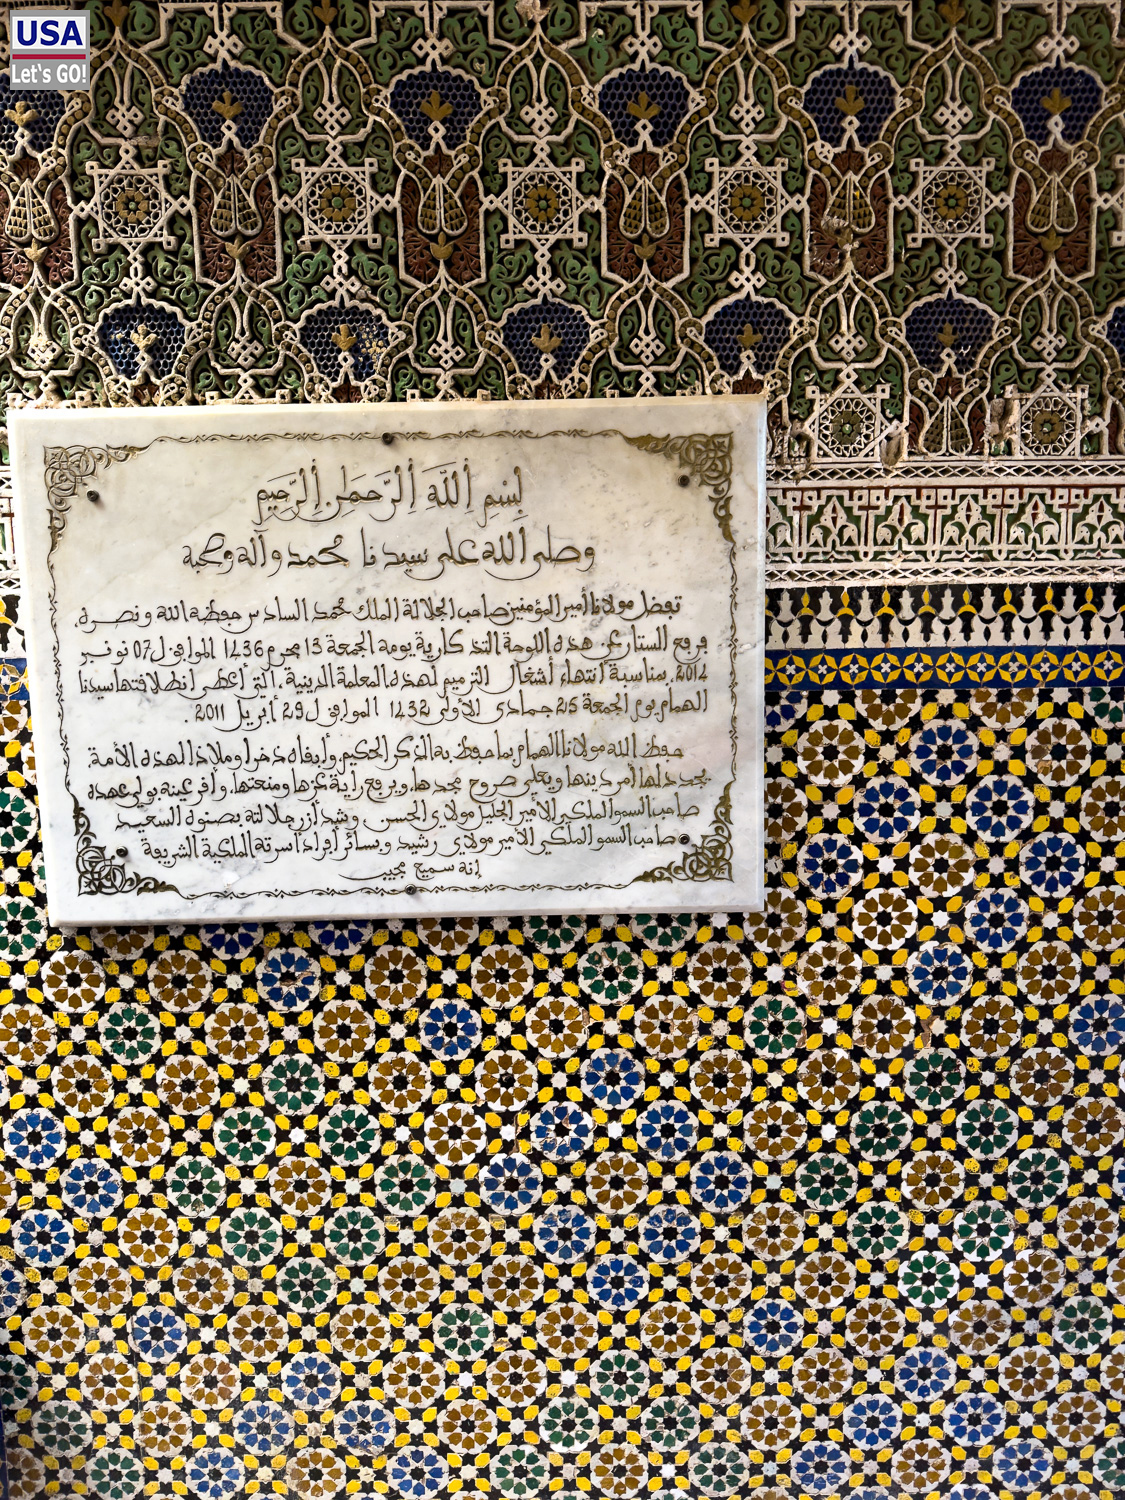 USA
Let's GO!
بسم الله الرحمن الرحيم
وصلى الله على سيدنا محمد وآله وصحبه
تفضل مولانا أمير المؤمنين صاحب الجلالة الملك محمد السادس حفظه الله ونصره،
برفع الستار عن هذه اللوحة التذكارية يومه الجمعة 13 محرم 1436 الموافق ل 07 نونبر
2014، بمناسبة انتهاء أشغال الترميم لهذه المعلمة الدينية، التي أعطى انطلاقتها سيدنا
الهمام يوم الجمعة 25 جمادى الأولى 1432 الموافق ل 29 أبريل 2011 .
حفظ الله مولانا الهمام بما حفظ به الذكر الحكيم، وأبقاه ذخرا وملاذا لهذه الأمة،
يجدد لها أمر دينها ويعلي صروح مجدها، ويرفع راية عزها ومنعتها، وأقر عينه بولي عهده
صاحب السمو الملكي الأمير الجليل مولاي الحسن وشد أزر جلالته بصنوه السعيد
صاحب السمو الملكي الأمير مولاي رشيد وبسائر أفراد أسرته الملكية الشريفة
إنه سميع مجيب